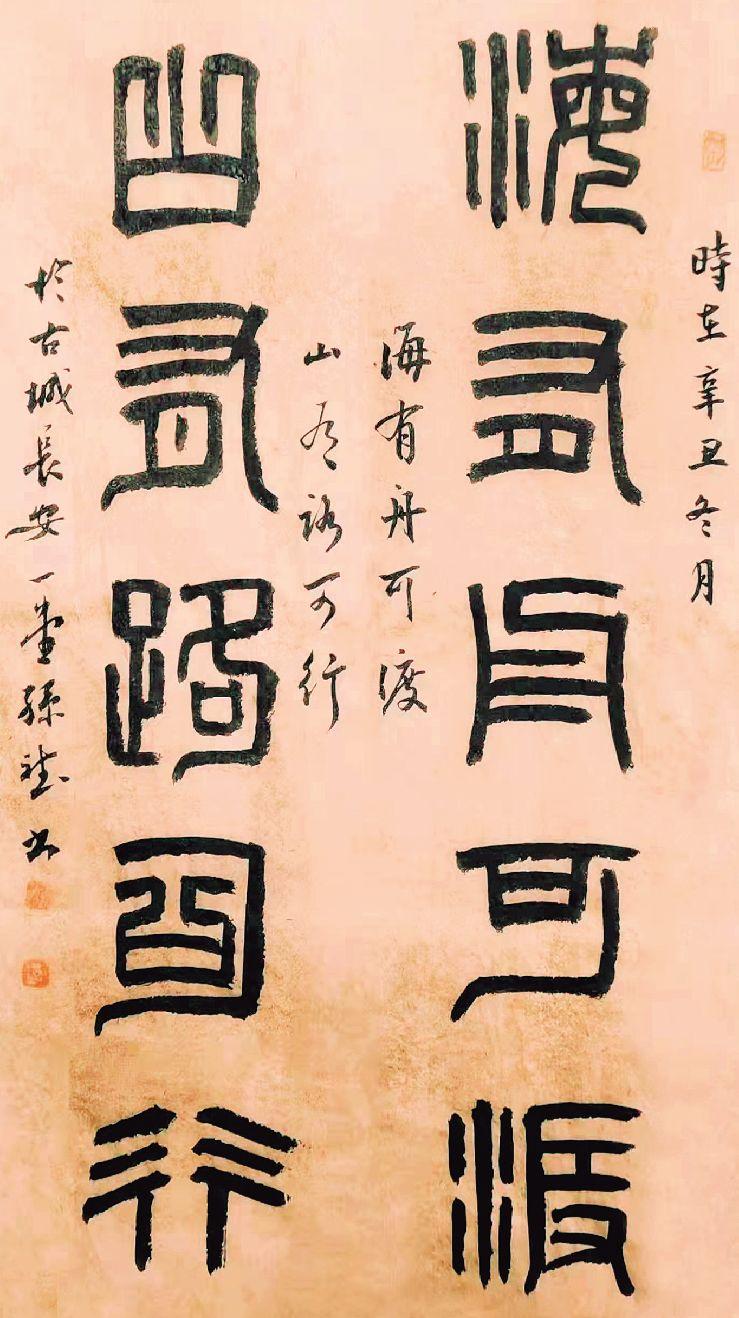 時在辛丑冬月
海有舟可渡
海有舟可渡
山有路可行
山有路可行
於古城長安一 孫 书